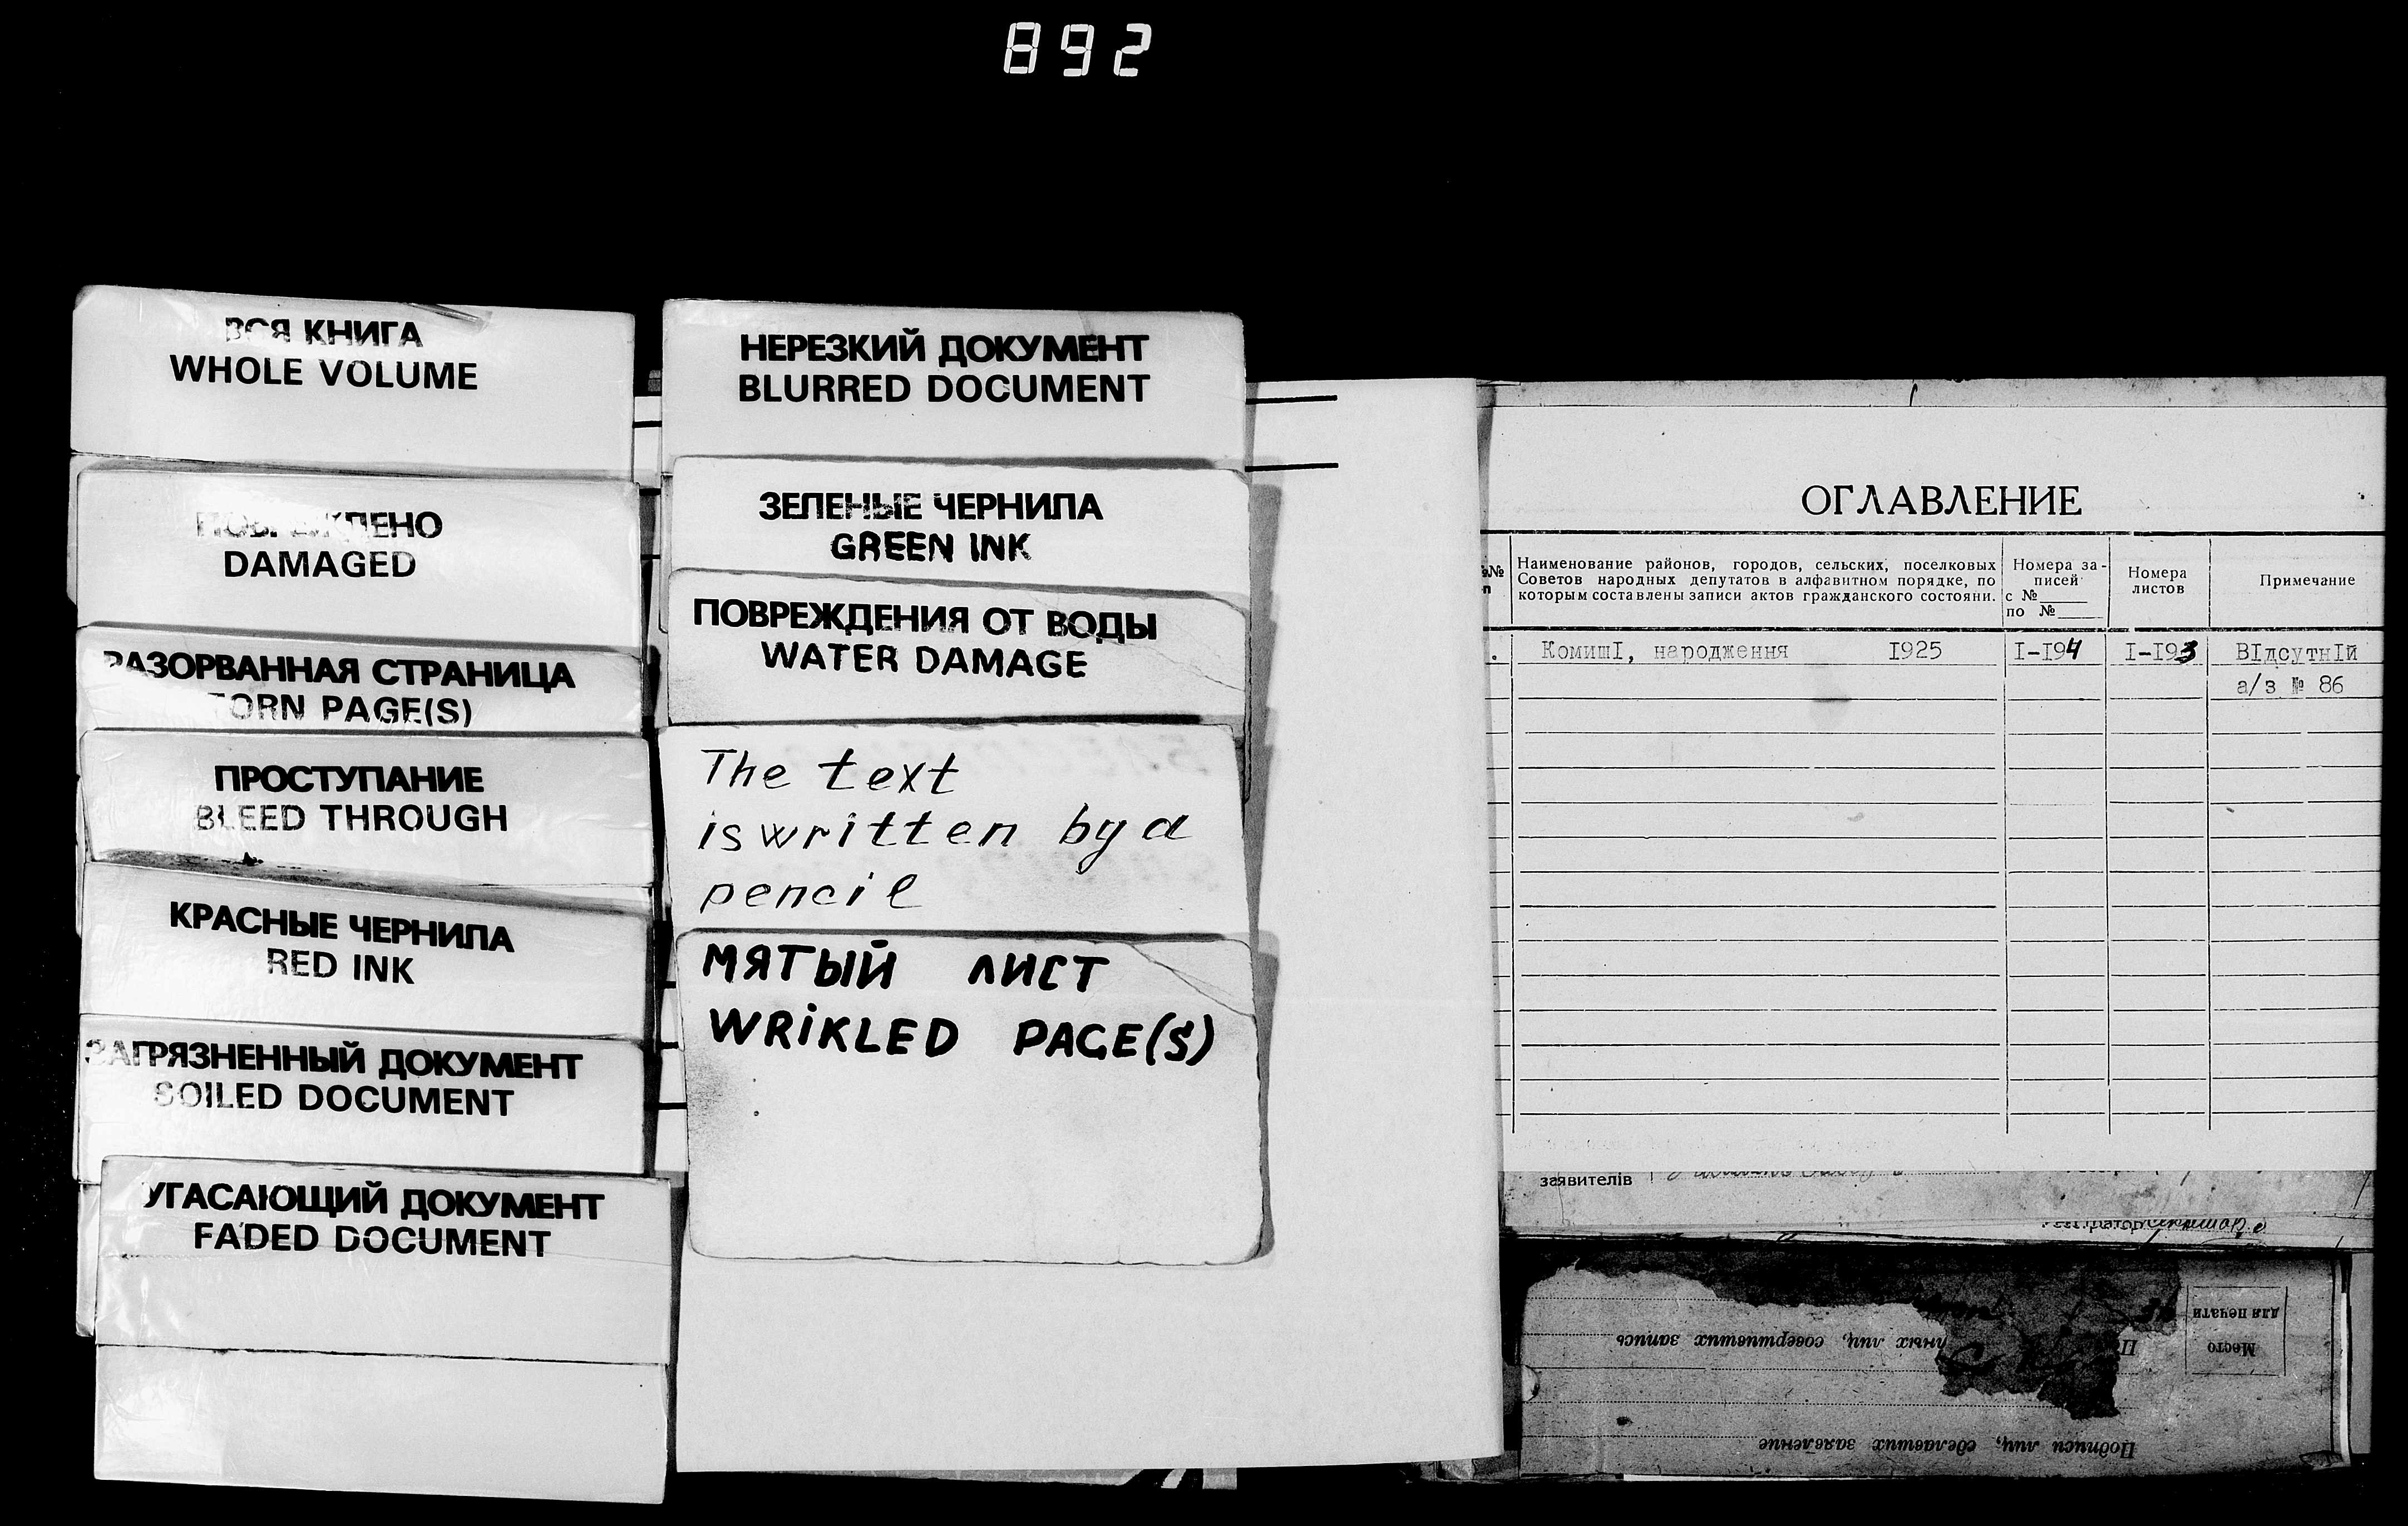 892
ВСЯ КНИГА
WHOLE VOLUME
ПОВРЕЖДЕНО
DAMAGED
РАЗОРВАННАЯ СТРАНИЦА
TORN PAGE(S)
ПРОСТУПАНИЕ
BLEED THROUGH
КРАСНЫЕ ЧЕРНИЛА
RED INK
ЗАГРЯЗНЕННЫЙ ДОКУМЕНТ
SOILED DOCUMENT
УГАСАЮЩИЙ ДОКУМЕНТ
FADED DOCUMENT
НЕРЕЗКИЙ ДОКУМЕНТ
BLURRED DOCUMENT
ЗЕЛЕНЫЕ ЧЕРНИЛА
GREEN INK
ПОВРЕЖДЕНИЯ ОТ ВОДЫ
WATER DAMAGE
The text
is written by a
pencil
МЯТЫЙ ЛИСТ
WRiKLED PAGE(S)
ОГЛАВЛЕНИЕ
Наименование районов, городов, сельских, поселковых
Советов народных депутатов в алфавитном порядке, по
которым составлены записи актов гражданского состояни.
Номера за-
писей
с №____
по №____
Номера
листов
Примечание
КомишІ, народження 1925 І-І94 І-І93 ВІдсутнІй
а/з № 86
заявителів
Место
для печати
лиц, совершивших запись
Подписи лиц, сделавших заявление